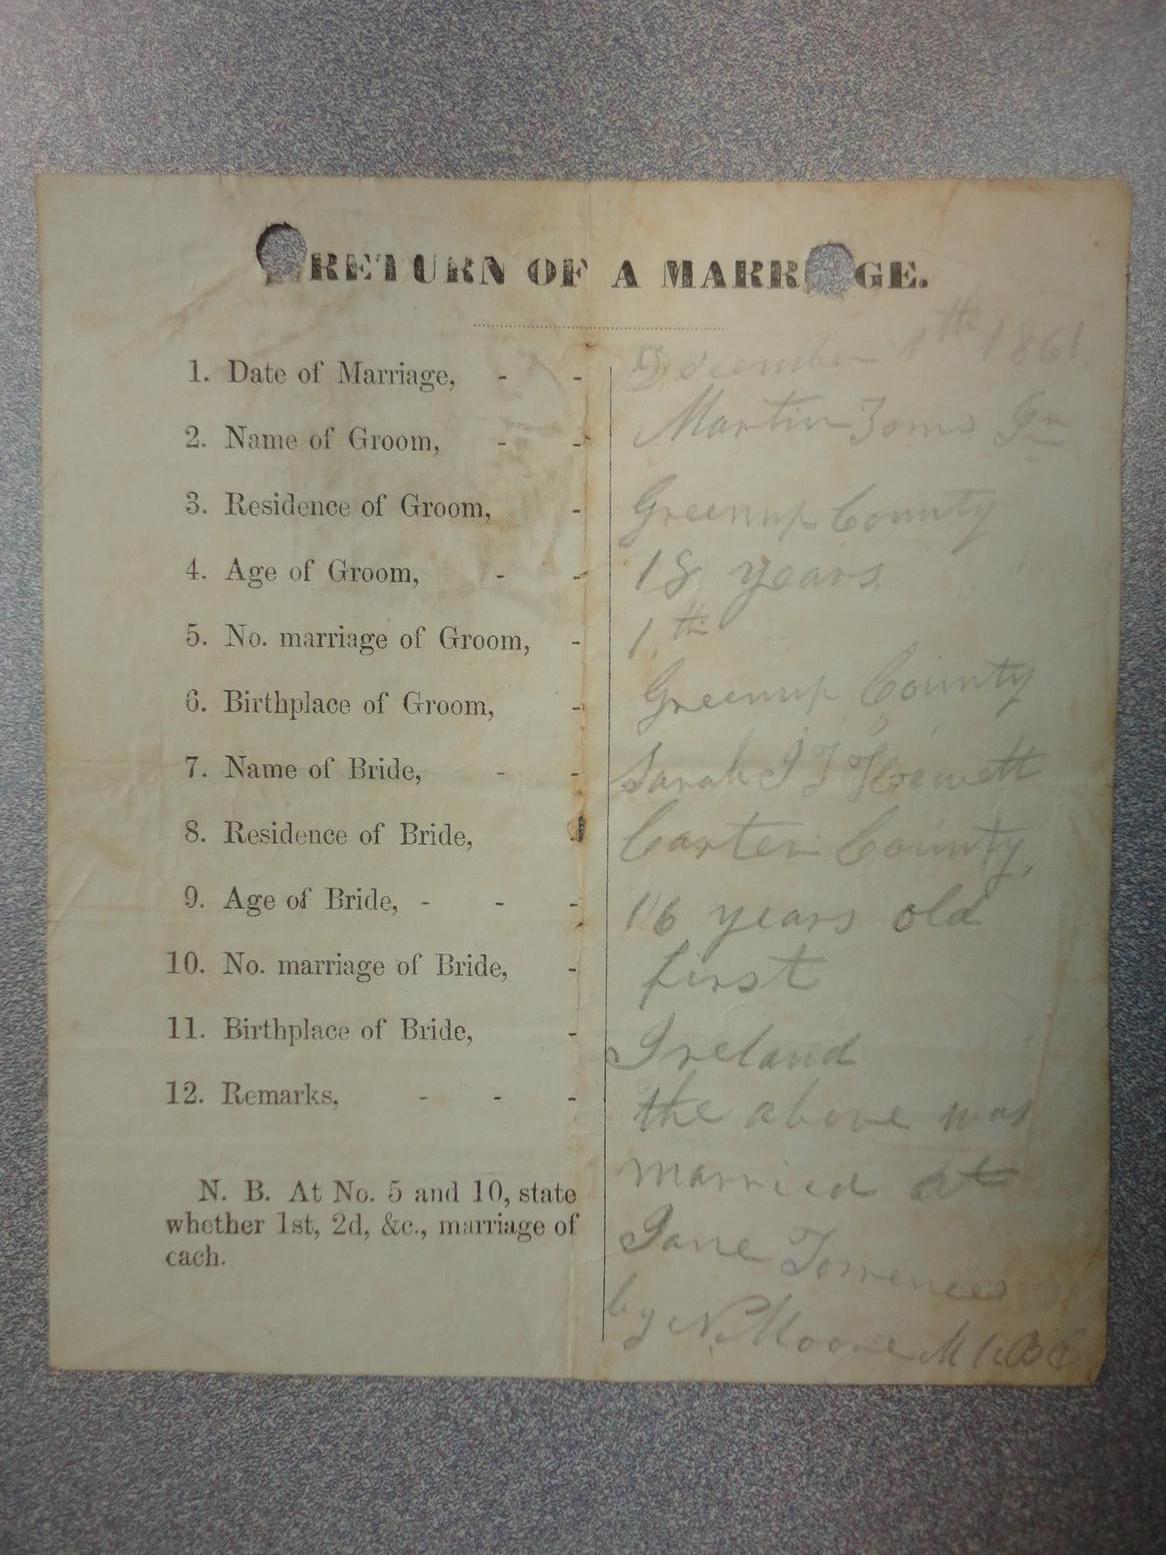 RETURN OF A MARR GE.
1. Date of Marriage, - - December 1th 1861
2. Name of Groom, - - Martin Toms Jr
3. Residence of Groom, - Greenup County
4. Age of Groom, - - 18 years
5. No. marriage of Groom, - 1th
6. Birthplace of Groom, - Greenup County
7. Name of Bride, - - Sarah J T
8. Residence of Bride, - Carter County,
9. Age of Bride, - - - 16 years old
10. No. marriage of Bride, - first
11. Birthplace of Bride, - Ireland
12. Remarks, - - - the above was
married at
N. B. At No. 5 and 10, state
whether 1st, 2d, &c., marriage of
each.
Jane
by N. Moore M